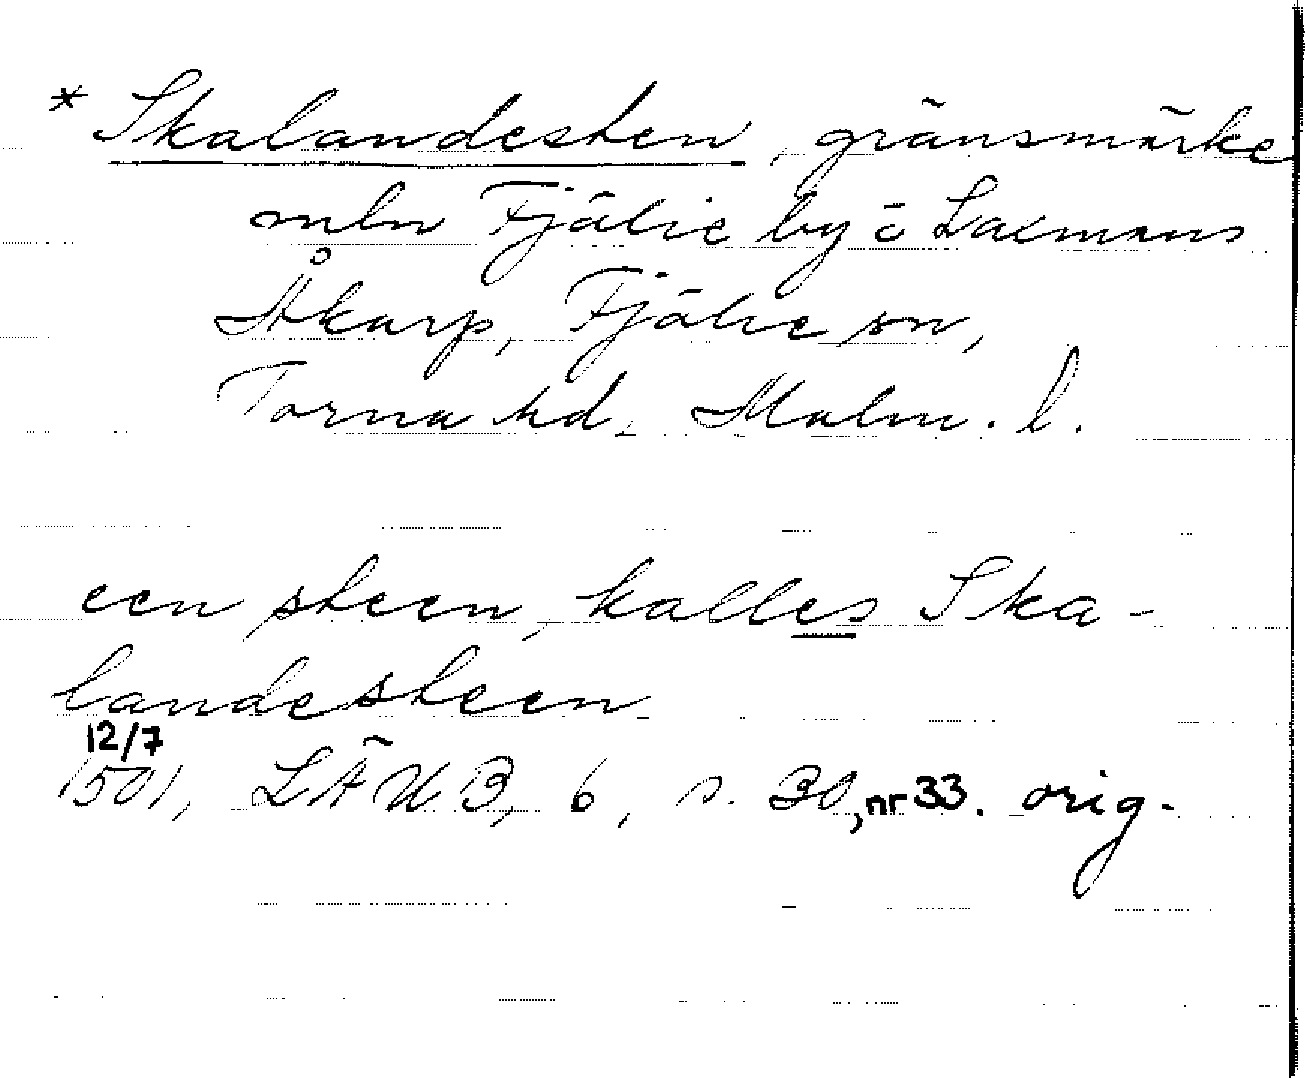 * Skalandesten, gränsmärke
mln Fjälie by o Laxmans
Åkarp, Fjälie sn,
Torna hd, Malm. l.
een steen, kalles Ska-
landesteen
12/7
1501, LÄUB, 6, s. 30, nr 33. orig.